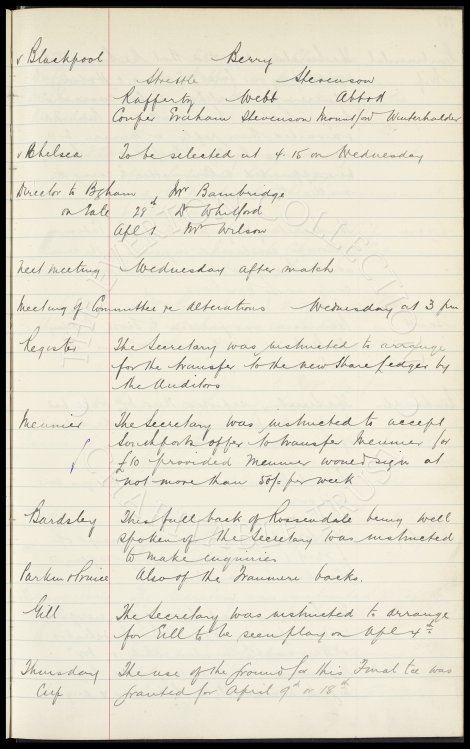 v Blackpool Berry
Strettle Stevenson
Rafferty Webb Abbott
Couper Graham Stevenson Mountford Winterhalder
v Chelsea To be selected at 4.15 on Wednesday
Director to B'ham Mr Bainbridge
on Gate 28th Dr Whitford
Apl 1 Mr Wilson
Next meeting Wednesday after match
Meeting of Committee re Alterations Wednesday at 3 pm
Register The Secretary was instructed to arrange
for the transfer to the new Share Ledger by
the Auditors
Meunier The Secretary was instructed to accept
Southports offer to transfer Meunier for
£10 provided Meunier would sign at
not more than 50/- per week
Bardsley This full back of Rossendale being well
spoken of the Secretary was instructed
to make inquiries
Parkin & Prince Also of the Tranmere backs.
Gill The Secretary was instructed to arrange
for Gill to be seen play on Apl 4th
Thursday The use of the ground for this Final tie was
Cup granted for April 9th or 18th
THE EVERTON COLLECTION